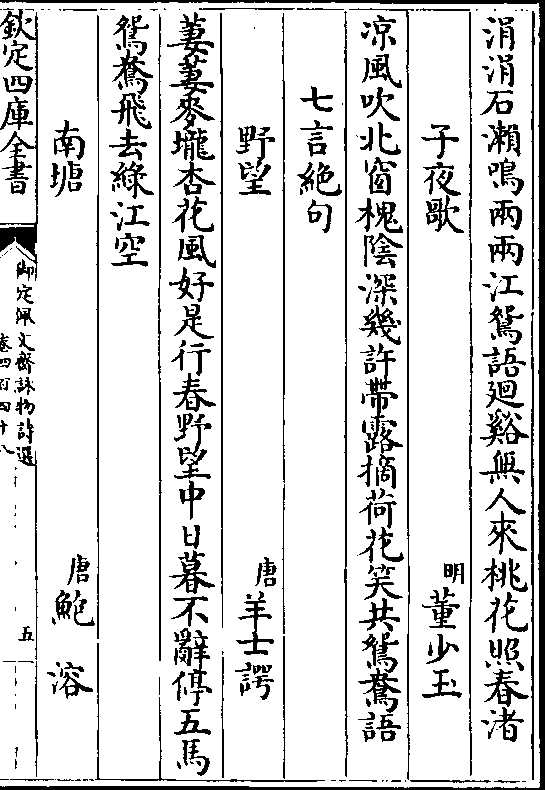 涓涓石瀨鳴兩兩江鴛語廻谿無人來桃花照春渚
子夜歌 明 董少玉
凉風吹北窗槐陰深幾許帶露摘荷花笑共鴛鴦語
七言絶句
野望 唐 羊士諤
萋萋麥壠杏花風好是行春野望中日暮不辭停五馬
鴛鴦飛去綠江空
南塘 唐 鮑溶
欽定四庫全書
御定佩文齋詠物詩選
卷四百四十八
五